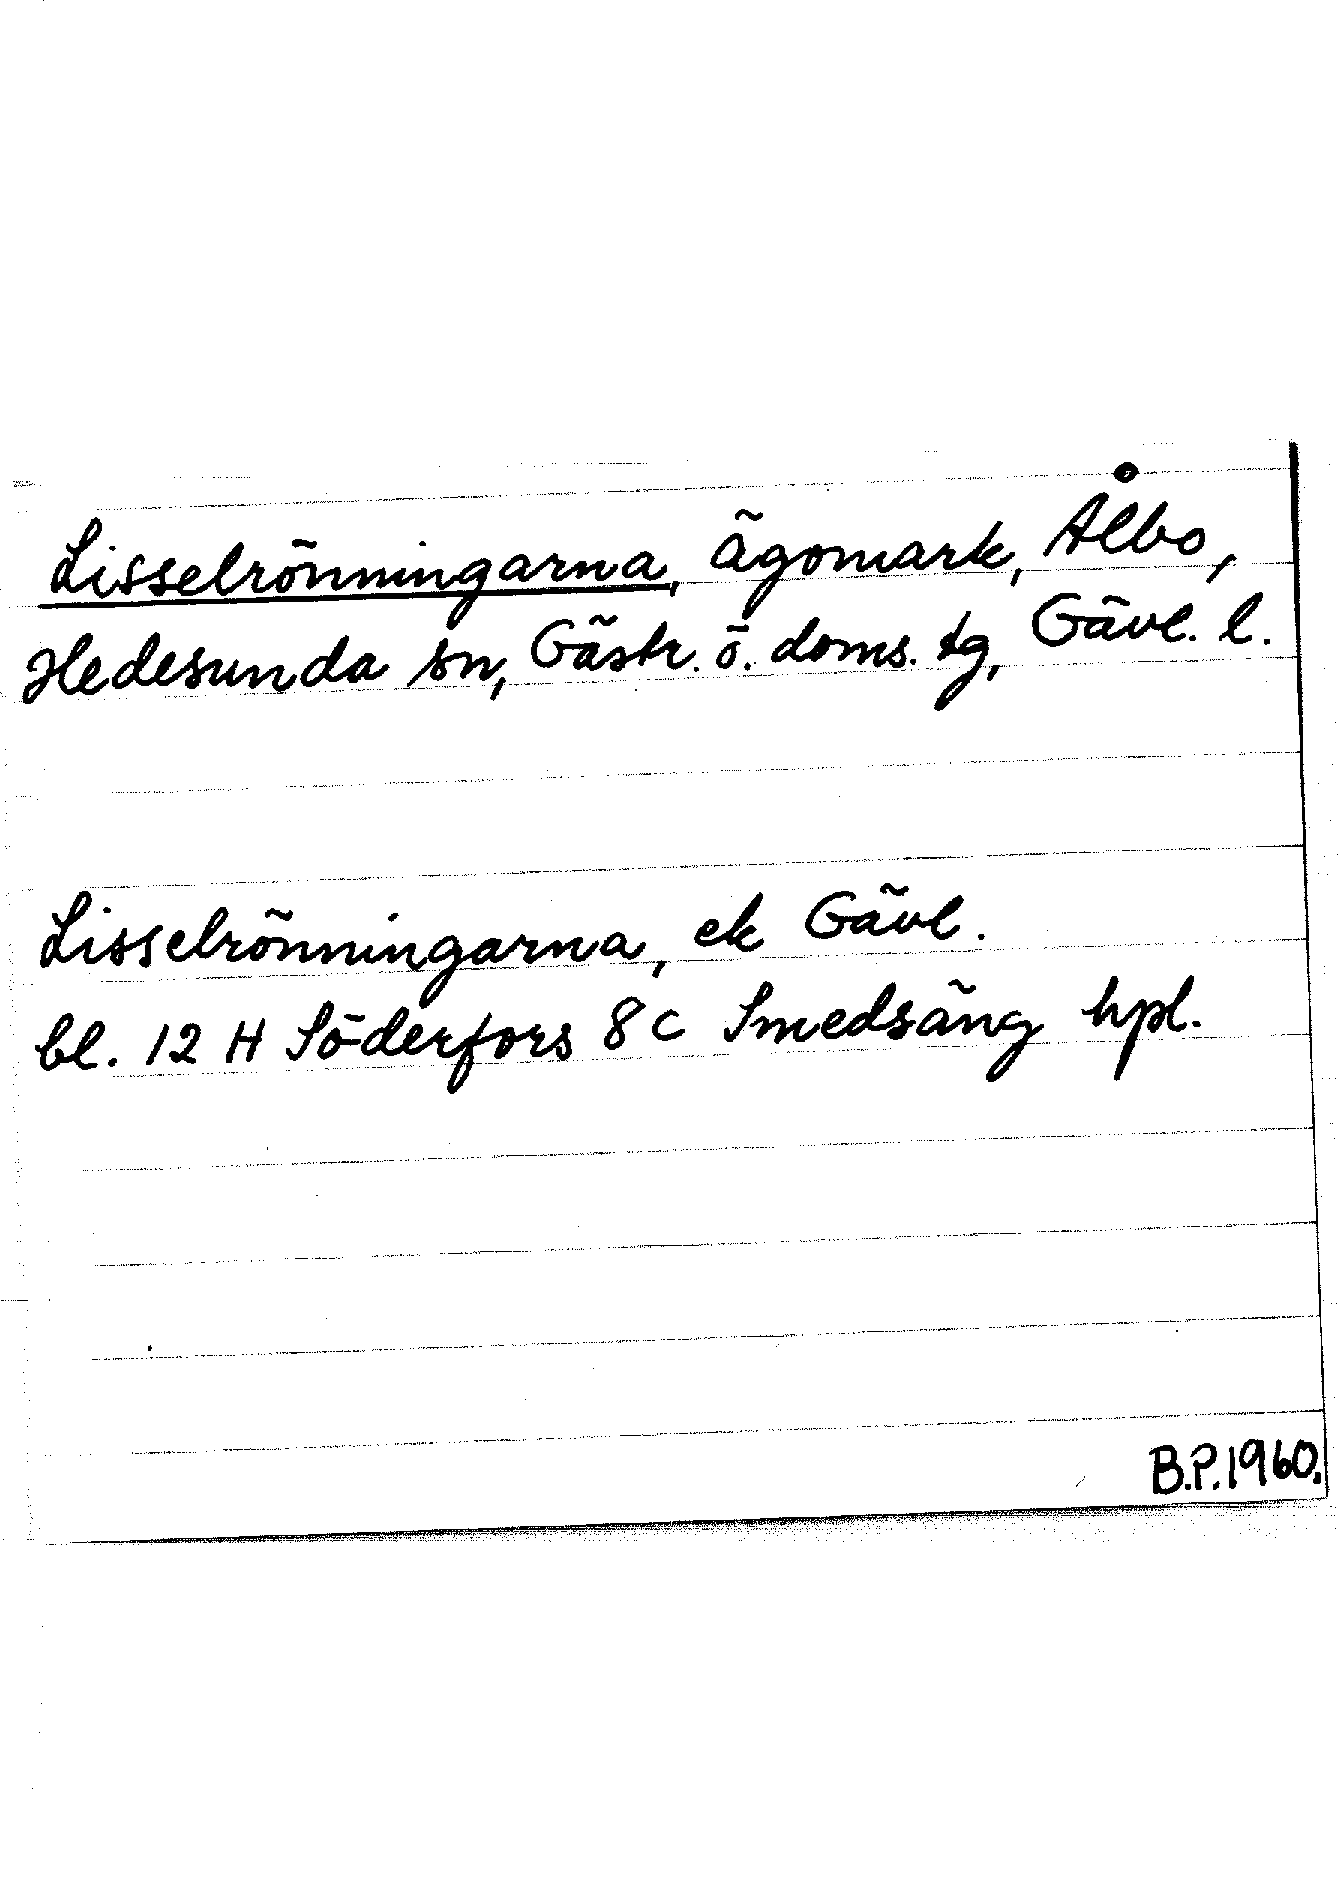 Lisselrönningarna, ägomark, Ålbo,
Hedesunda sn, Gästr. ö. doms. tg, Gävl. l.
Lisselrönningarna, ek Gävl.
bl. 12 H Söderfors 8 c Smedsäng hpl.
B.P.1960.